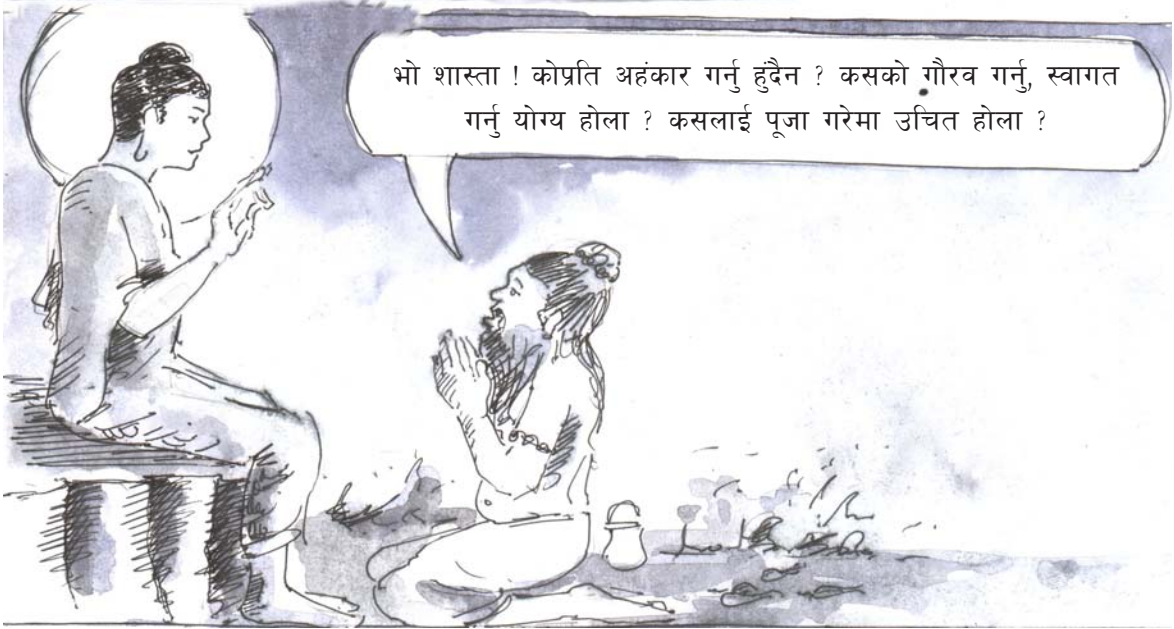 भो शास्ता ! कोप्रति अहंकार गर्नु हुंदैन ? कसको गौरव गर्नु, स्वागत
गर्नु योग्य होला ? कसलाई पूजा गरेमा उचित होला ?